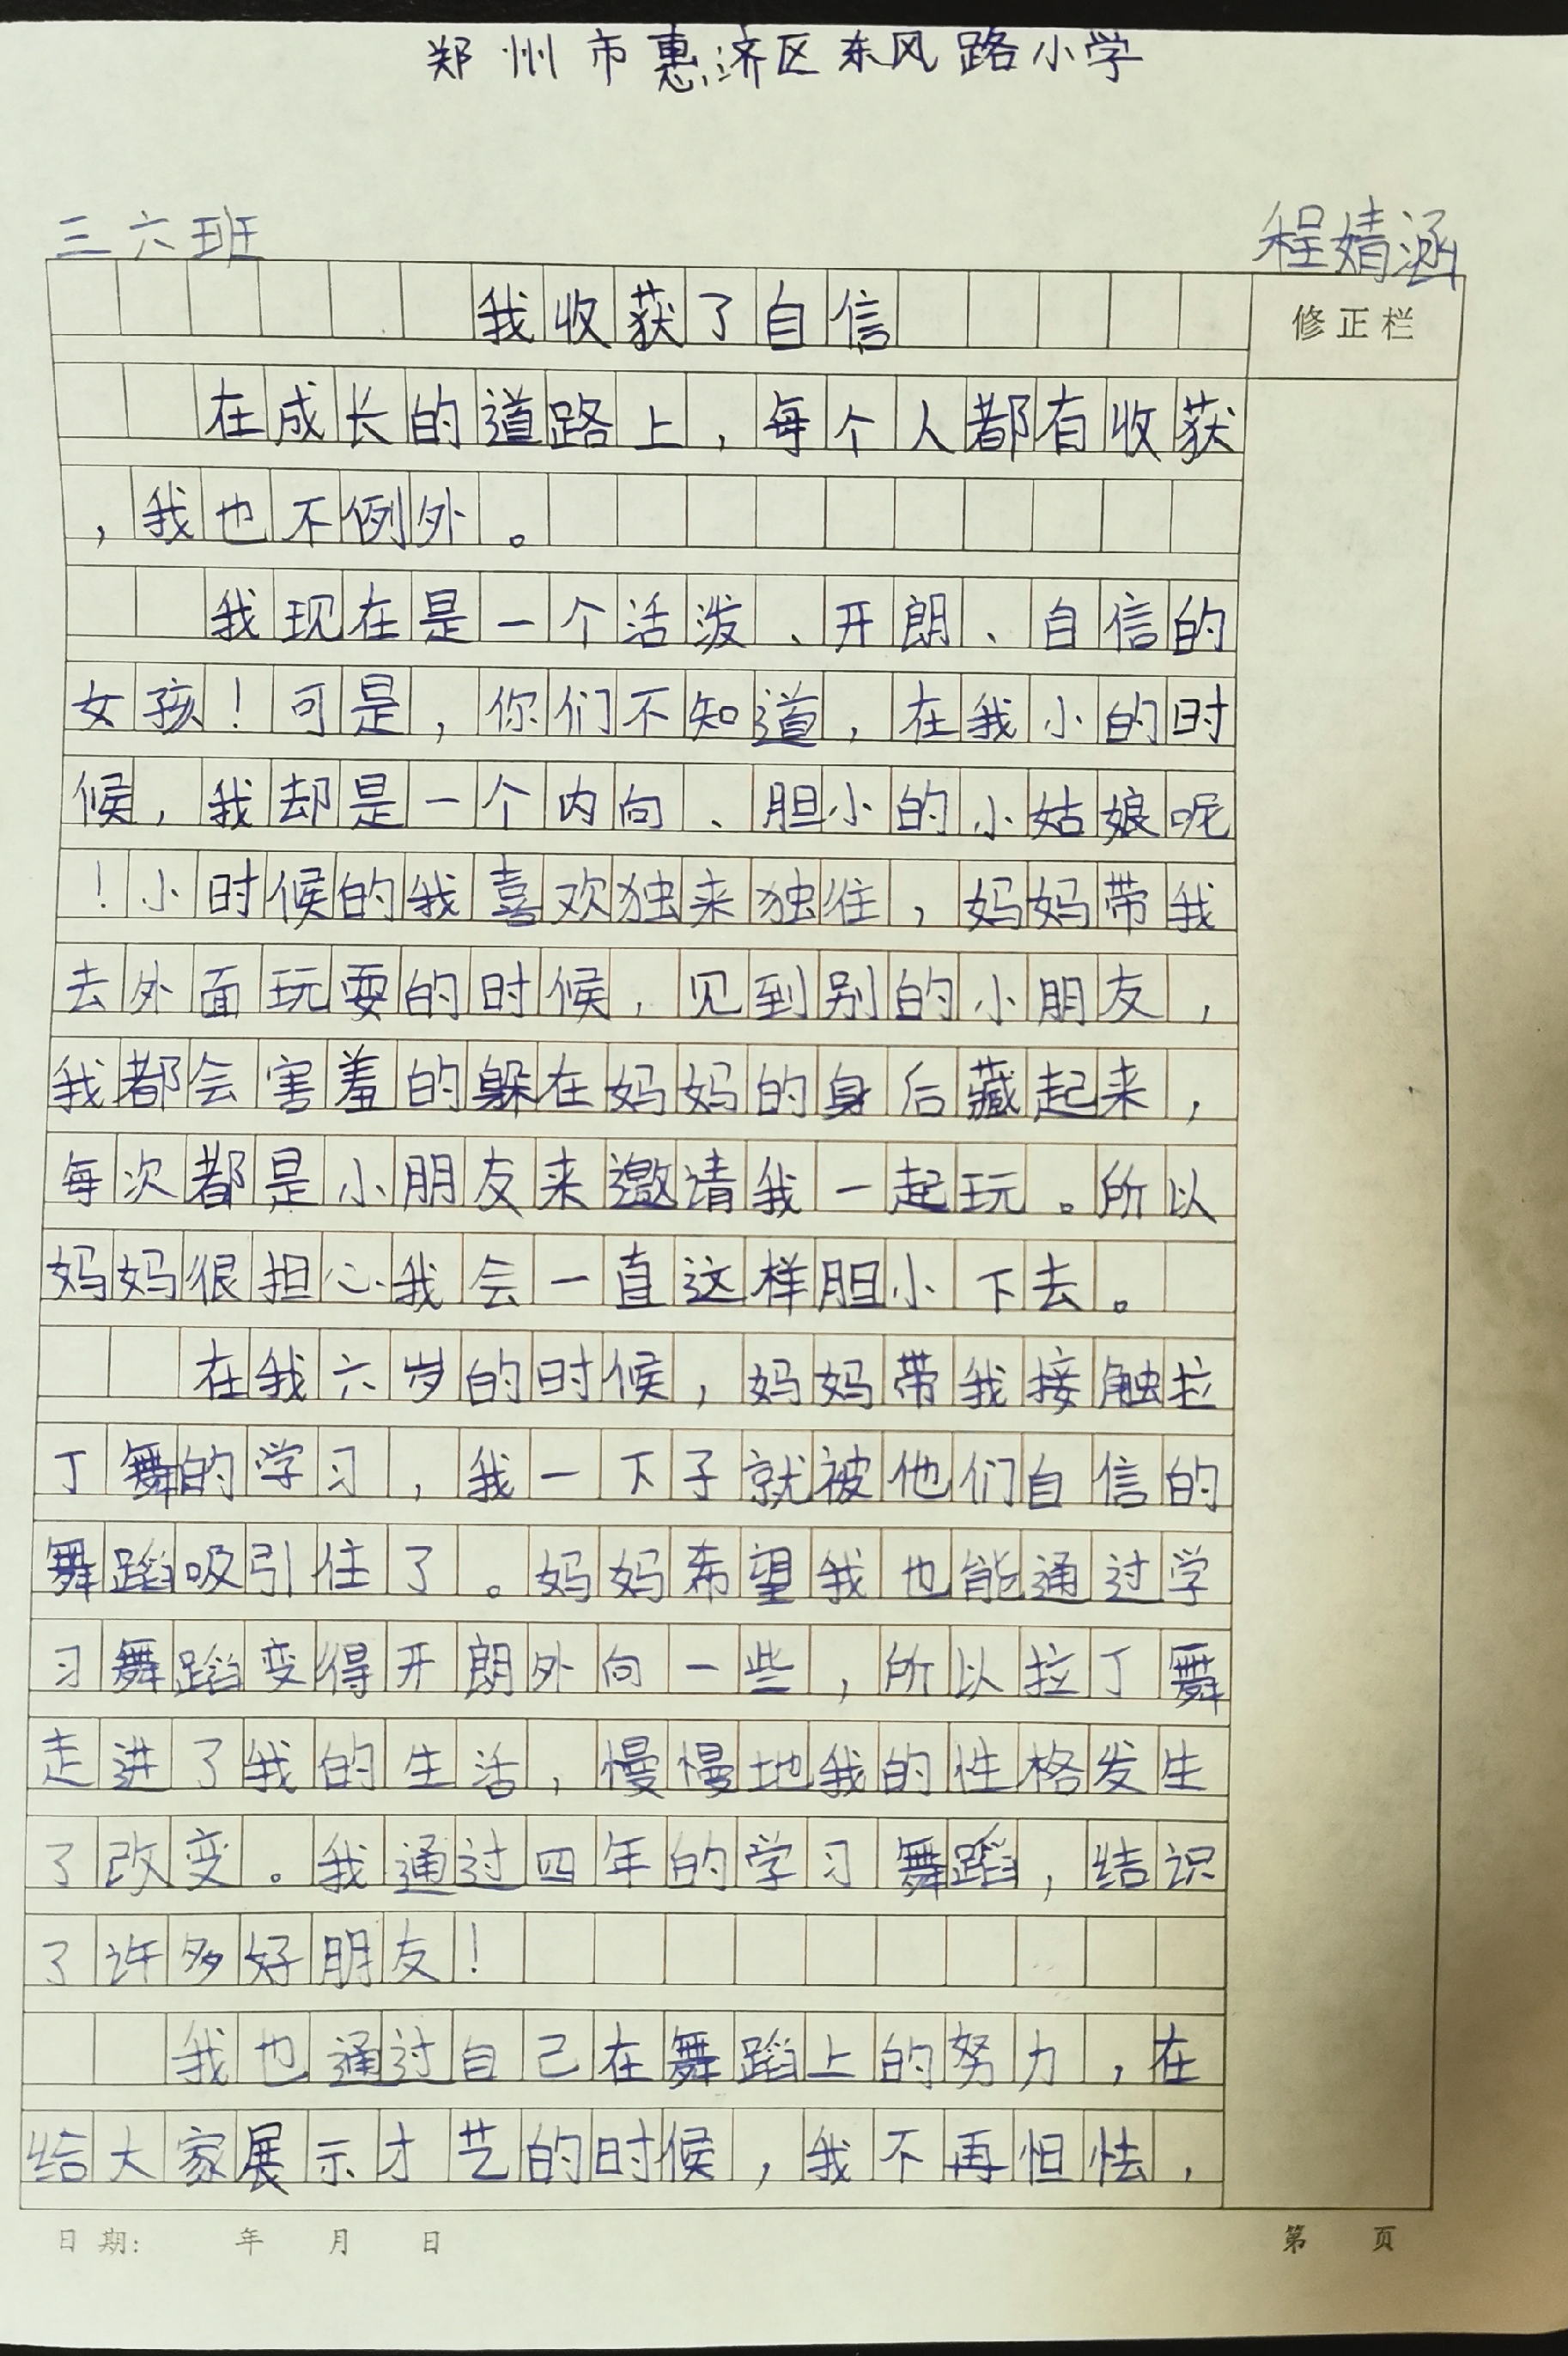 郑州市惠济区东风路小学
三六班 程婧涵
我收获了自信 修正栏
在成长的道路上，每个人都有收获
，我也不例外。
我现在是一个活泼、开朗、自信的
女孩！可是，你们不知道，在我小的时
候，我却是一个内向、胆小的小姑娘呢
！小时候的我喜欢独来独往，妈妈带我
去外面玩耍的时候，见到别的小朋友，
我都会害羞的躲在妈妈的身后藏起来，
每次都是小朋友来邀请我一起玩。所以
妈妈很担心我会一直这样胆小下去。
在我六岁的时候，妈妈带我接触拉
丁舞的学习，我一下子就被他们自信的
舞蹈吸引住了。妈妈希望我也能通过学
习舞蹈变得开朗外向一些，所以拉丁舞
走进了我的生活，慢慢地我的性格发生
了改变。我通过四年的学习舞蹈，结识
了许多好朋友！
我也通过自己在舞蹈上的努力，在
给大家展示才艺的时候，我不再怛怯，
日期： 年 月 日 第 页